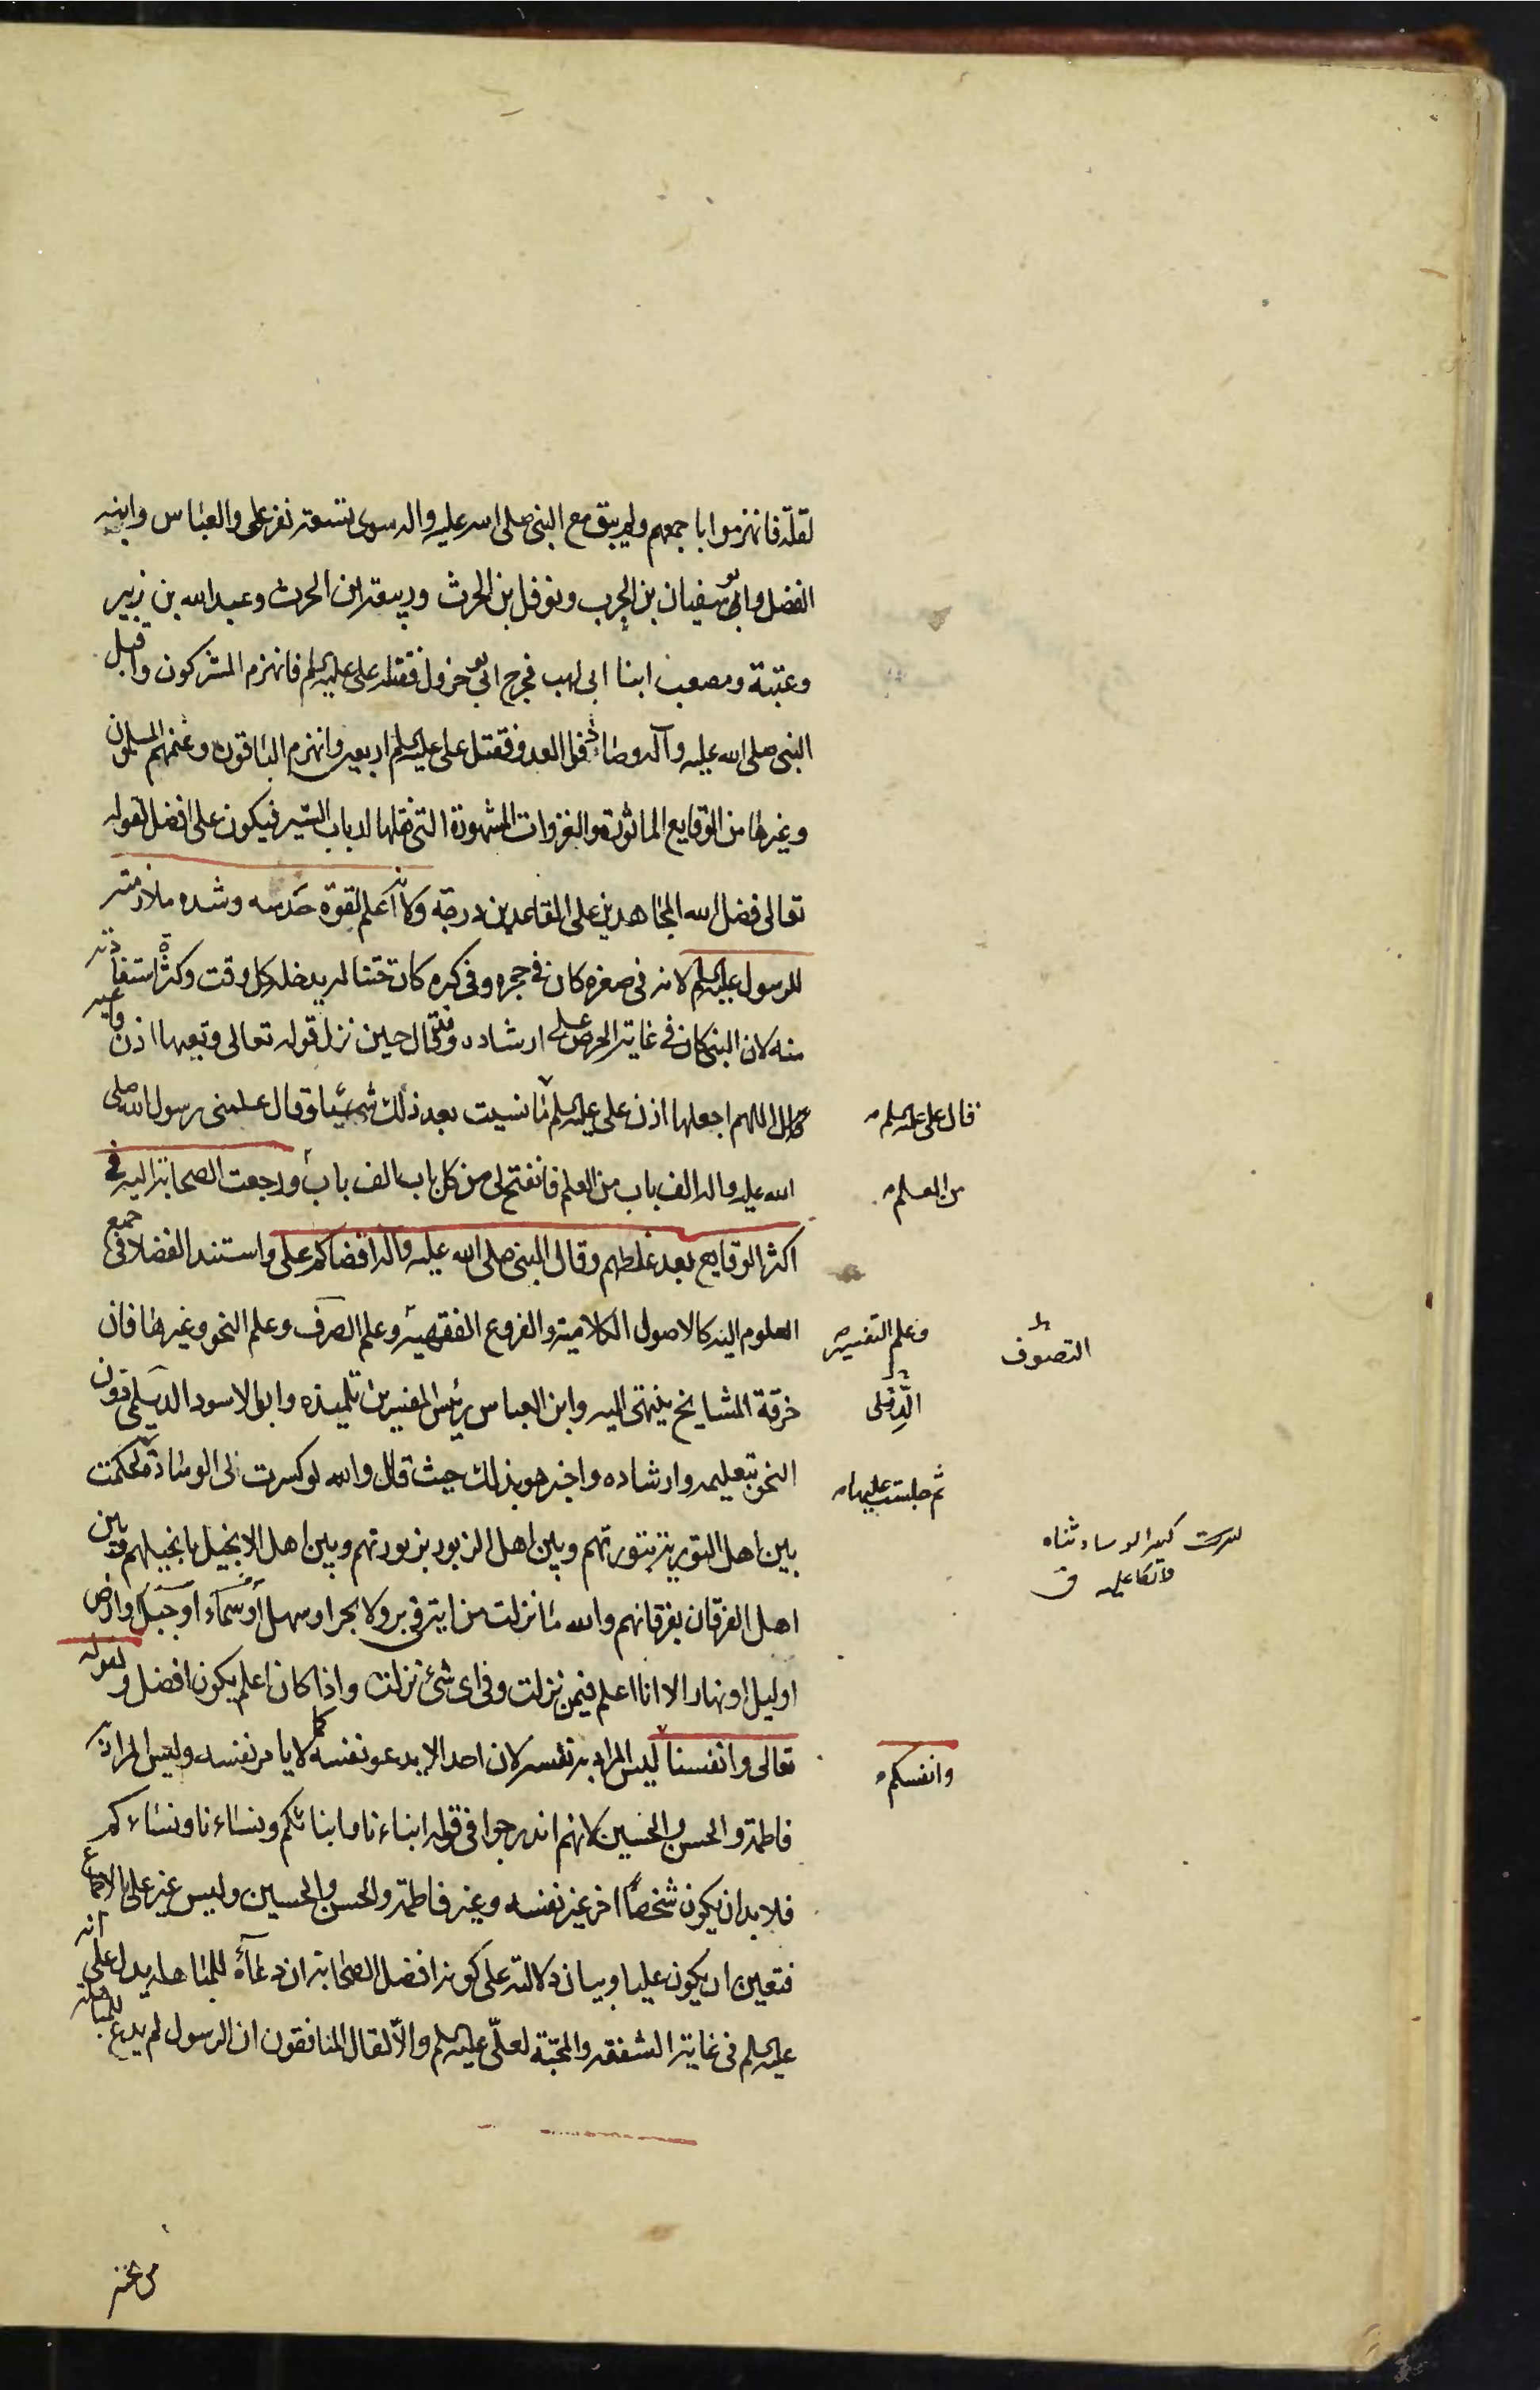 لقلة فانهزموا باجمعهم ولم يبق مع النبى صلى الله عليه واله سوى تسعة نفر على والعباس وابنه
الفضل وابو سفيان بن الحرب ونوفل بن الحرث وربيعة ابن الحرث وعبد الله بن زبير
وعتبة ومصعب ابنا ابى لهب فخرج ابو جزول فقتله على عليه السلم فانهزم المشركون واقبل
النبى صلى الله عليه وآله وصادفوا العدو فقتل على عليه السلم اربعين وانهزم الباقون وغنمهم المسلمون
وغيرها من الوقايع الماثورة والغزوات المشهورة التى نقلها ارباب السير فيكون على افضل لقوله
تعالى فضل الله المجاهدين على القاعدين درجة وكانه اعلم لقوة حدسه وشده ملازمته
للرسول عليه السلم لانه فى صغره كان فى حجره وفى كبره كان ختنا له يدخله كل وقت وكثرة استفادته
منه لان النبى كان فى غاية الحرص على ارشاده وقال حين نزل قوله تعالى وتعيها اذن واعيه
اللهم اجعلها اذن على عليه السلم ما نسيت بعد ذلك شيئا وقال علمنى رسول الله صلى
قال على عليه السلم
الله عليه واله الف باب من العلم فانفتح لى من كل باب الف باب ورجعت الصحابة اليه فى
من العلم
اكثر الوقايع بعد غلطهم وقال النبى صلى الله عليه واله اقضاكم على واستند الفضلا فى جميع
العلوم اليه كالاصول الكلامية والفروع الفقهية وعلم الصرف وعلم النحو وغيرها فان
وعلم التفسير
التصوف
خرقة المشايخ ينتهى اليه وابن العباس رئيس المفسرين تلميذه وابو الاسود الديلمى دون
الدئلى
النحو بتعليمه وارشاده واخبر هو بذلك حيث قال والله لو كسرت لى الوسادة لحكمت
ثم جلست عليها
بين اهل التورية بتورتهم وبين اهل الزبور بزبورتهم وبين اهل الانجيل بانجيلهم وبين
كسرت كسر الوسادة ثناه
واتكا عليه ق
اهل الفرقان بفرقانهم والله ما نزلت من اية فى بر ولا بحر او سهل او سماء او جبل او ارض
او ليل او نهار الا انا اعلم فيمن نزلت وفى اى شئ نزلت واذا كان اعلم يكون افضل ولقوله
تعالى وانفسنا ليس المراد به نفسه لان احدا لا يدعو نفسه كما لا يامر نفسه وليس المراد به
وانفسكم
فاطمة والحسن والحسين لانهم اندرجوا فى قوله ابناءنا وابنائكم ونساءنا ونساءكم
فلا بد ان يكون شخصا اخر غير نفسه وغير فاطمة والحسن والحسين وليس غير على بالاجماع
فتعين ان يكون عليا وبيان دلالته على كونه افضل الصحابة ان دعاءه للمباهلة يدل على انه
عليه السلم فى غاية الشفقة والمحبة لعلى عليه السلم والا لقال المنافقون ان الرسول لم يدع للمباهلة